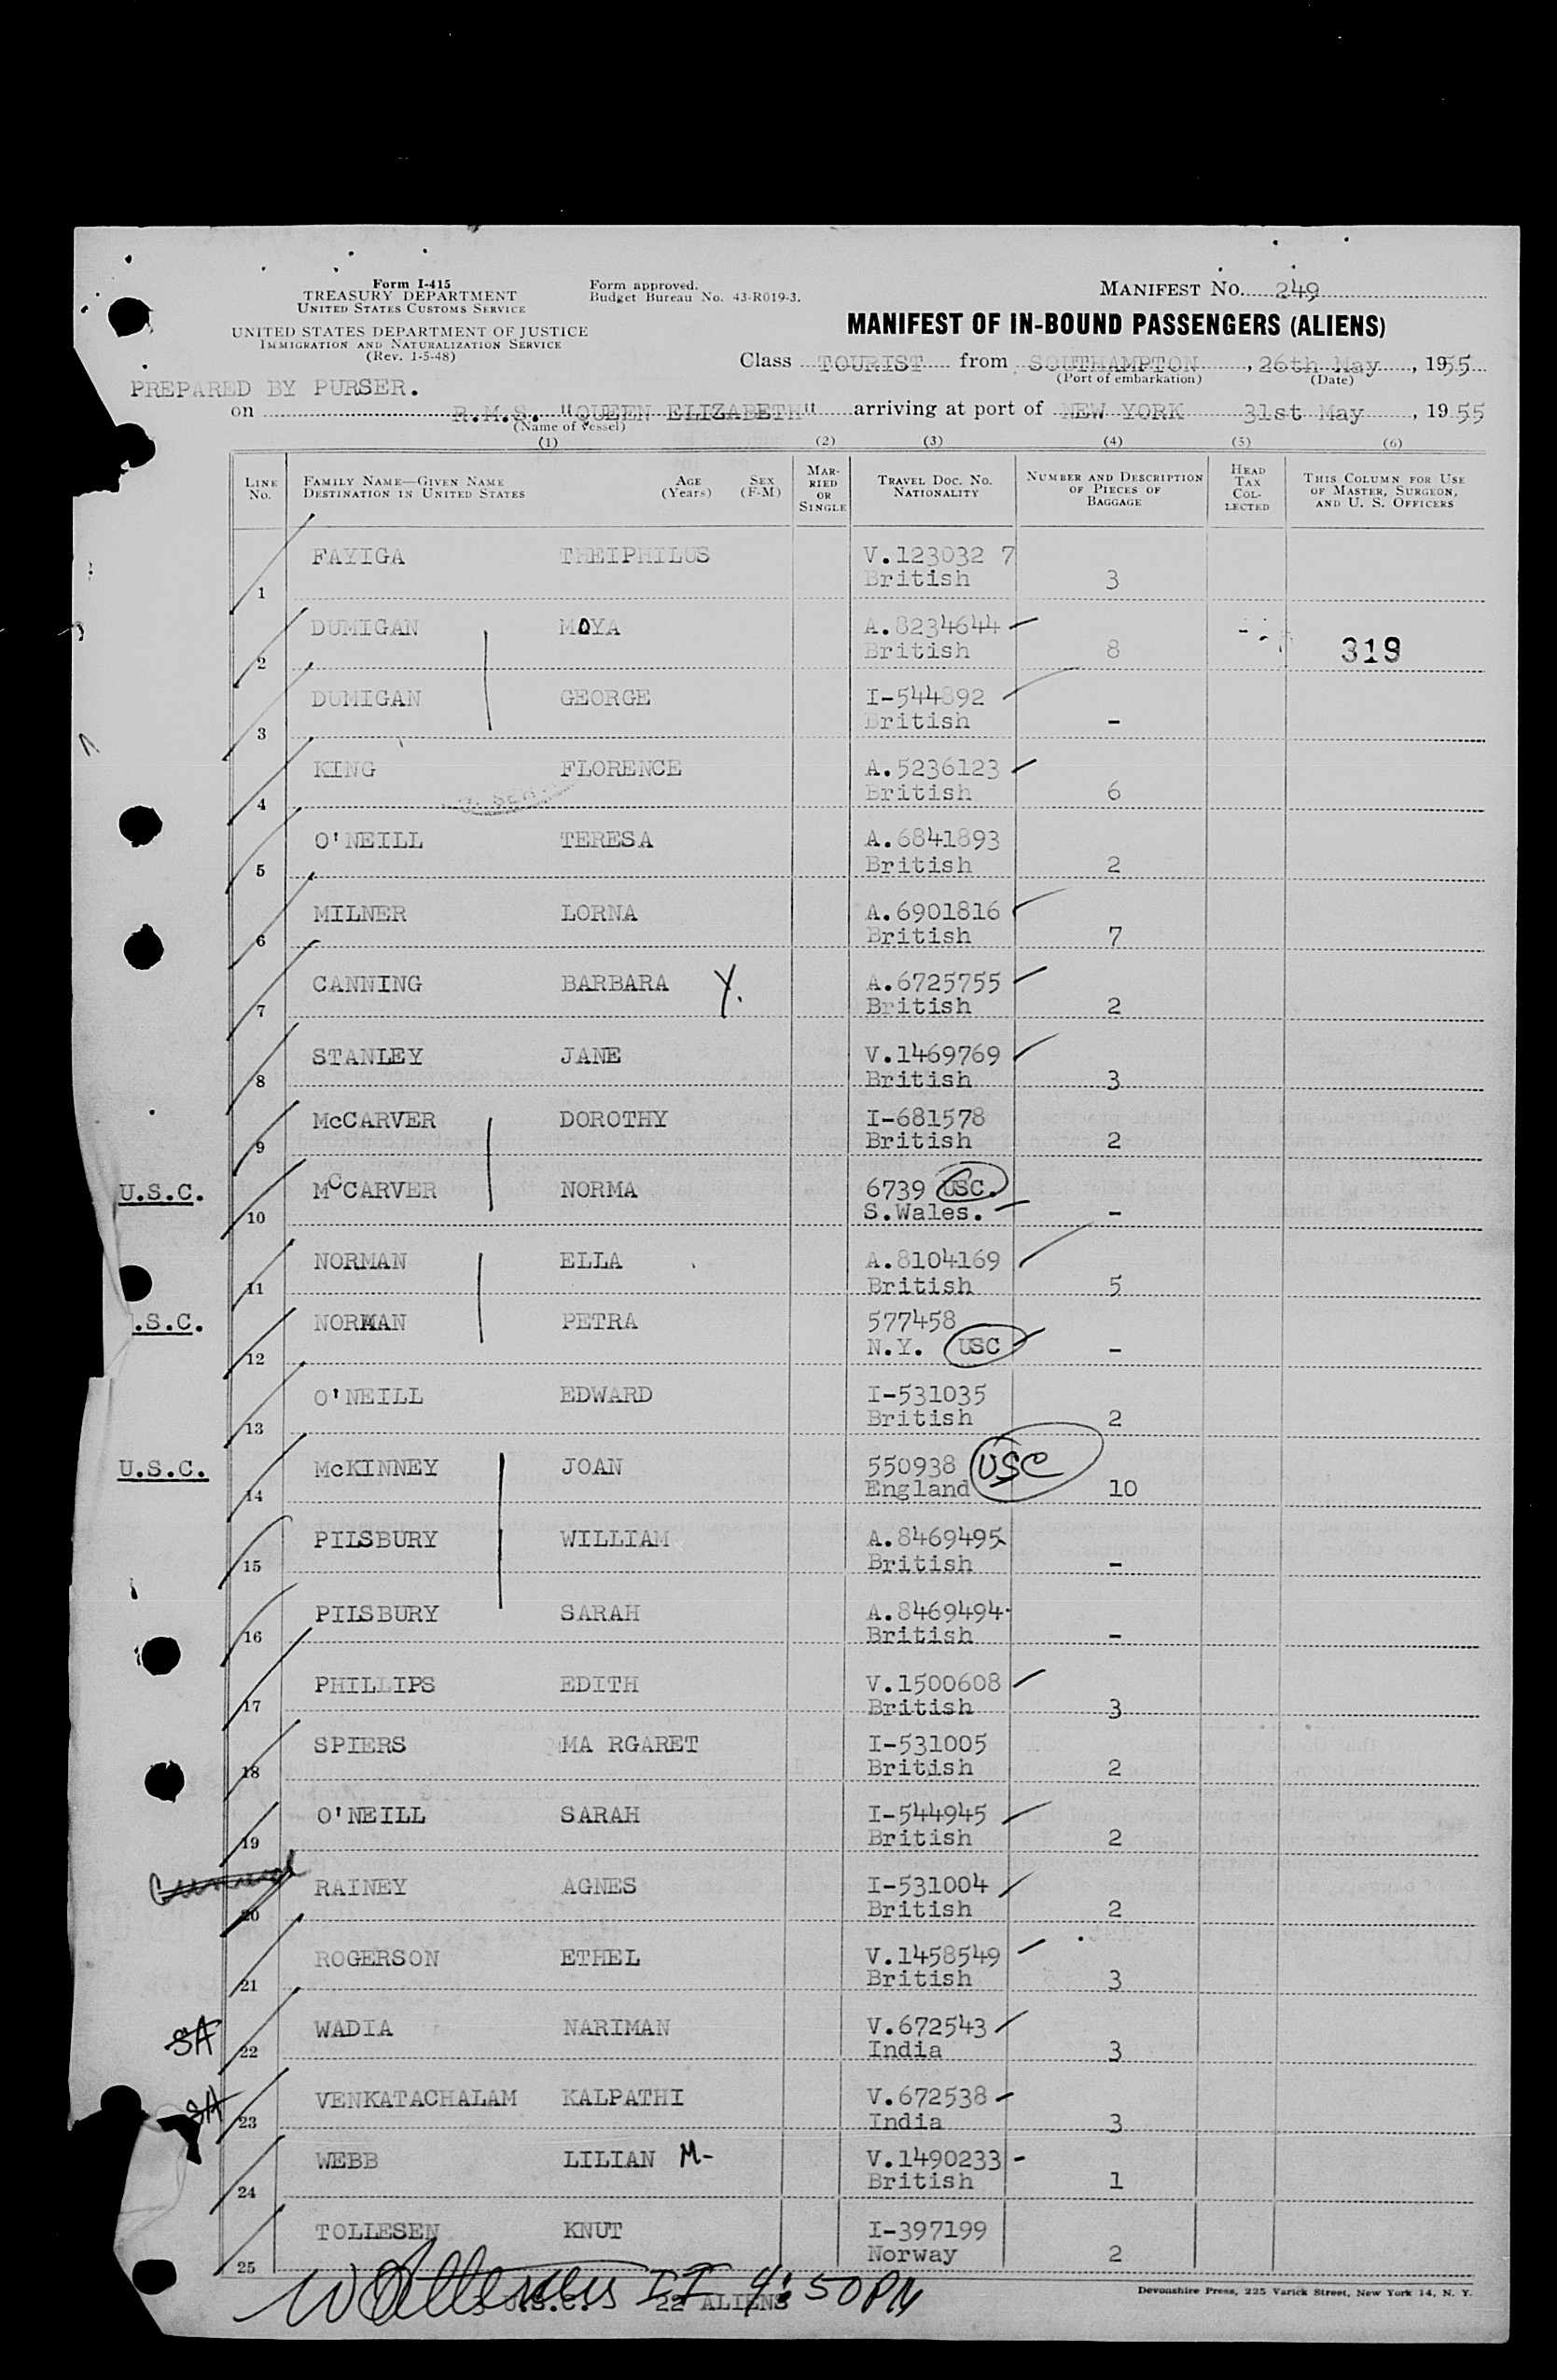 Form I-415
TREASURY DEPARTMENT
UNITED STATES CUSTOMS SERVICE
UNITED STATES DEPARTMENT OF JUSTICE
IMMIGRATION AND NATURALIZATION SERVICE
(Rev. 1-5-48)
Form approved.
Budget Bureau No. 43-R019-3.
MANIFEST NO. 249
MANIFEST OF IN-BOUND PASSENGERS (ALIENS)
Class TOURIST from SOUTHAMPTON, 26th May, 1955
(Port of embarkation) (Date)
PREPARED BY PURSER.
on R.M.S. "QUEEN ELIZABETH" arriving at port of NEW YORK 31st May, 1955
(Name of vessel)
(1) (2) (3) (4) (5) (6)
LINE NO.
FAMILY NAME—GIVEN NAME AGE SEX
DESTINATION IN UNITED STATES (Years) (F-M)
MARRIED OR SINGLE
TRAVEL DOC. NO. NATIONALITY
NUMBER AND DESCRIPTION OF PIECES OF BAGGAGE
HEAD TAX COLLECTED
THIS COLUMN FOR USE OF MASTER, SURGEON, AND U. S. OFFICERS
FAYIGA THEIPHILUS V.123032 7
1 British 3
DUMIGAN MOYA A.8234644
2 British 8 319
DUMIGAN GEORGE I-544892
3 British -
KING FLORENCE A.5236123
4 British 6
O'NEILL TERESA A.6841893
5 British 2
MILNER LORNA A.6901816
6 British 7
CANNING BARBARA Y. A.6725755
7 British 2
STANLEY JANE V.1469769
8 British 3
McCARVER DOROTHY I-681578
9 British 2
U.S.C. McCARVER NORMA 6739 USC.
10 S.Wales. -
NORMAN ELLA A.8104169
11 British 5
.S.C. NORMAN PETRA 577458
12 N.Y. USC -
O'NEILL EDWARD I-531035
13 British 2
U.S.C. McKINNEY JOAN 550938 USC
14 England 10
PILSBURY WILLIAM A.8469495
15 British -
PILSBURY SARAH A.8469494
16 British -
PHILLIPS EDITH V.1500608
17 British 3
SPIERS MA RGARET I-531005
18 British 2
O'NEILL SARAH I-544945
19 British 2
RAINEY AGNES I-531004
20 British 2
ROGERSON ETHEL V.1458549
21 British 3
SA WADIA NARIMAN V.672543
22 India 3
SA VENKATACHALAM KALPATHI V.672538
23 India 3
WEBB LILIAN M- V.1490233
24 British 1
TOLLESEN KNUT I-397199
25 Norway 2
II 4:50 PM
U.S.C. 22 ALIENS
Devonshire Press, 225 Varick Street, New York 14, N. Y.